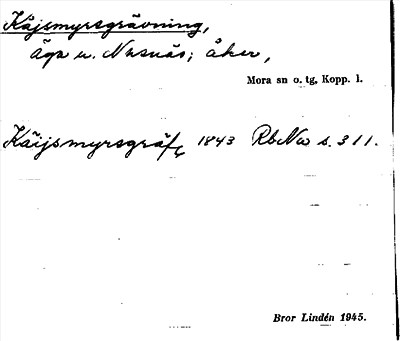 Kåjsmyrsgrävning,
äga u. Nusnäs; åker,
Mora sn o. tg, Kopp. l.
Käijsmyrsgräf 1843 RbNus s. 311.
Bror Lindén 1945.